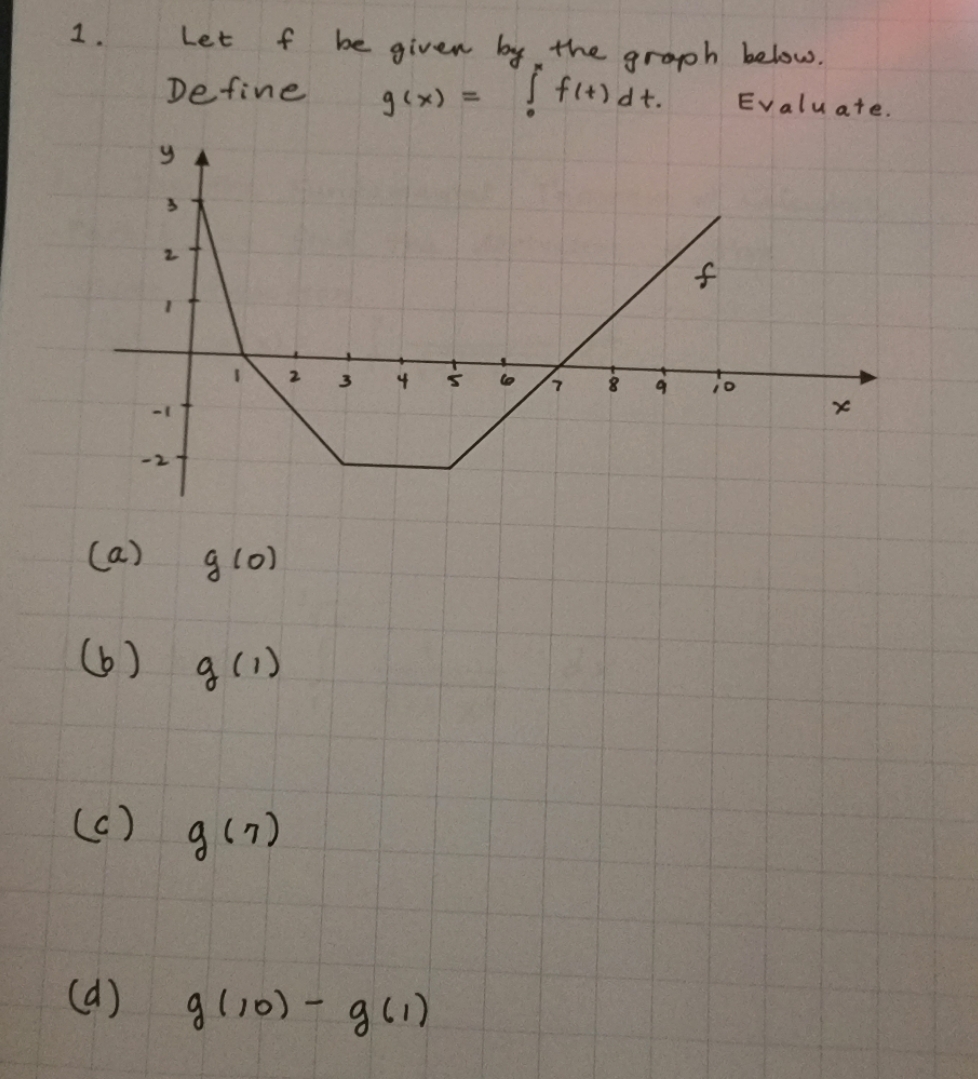 1. Let f be given by the graph below.
Define g(x) = ∫₀ˣ f(t) dt. Evaluate.
y
3
2
1
f
1 2 3 4 5 6 7 8 9 10
-1
x
-2
(a) g(0)
(b) g(1)
(c) g(7)
(d) g(10) - g(1)